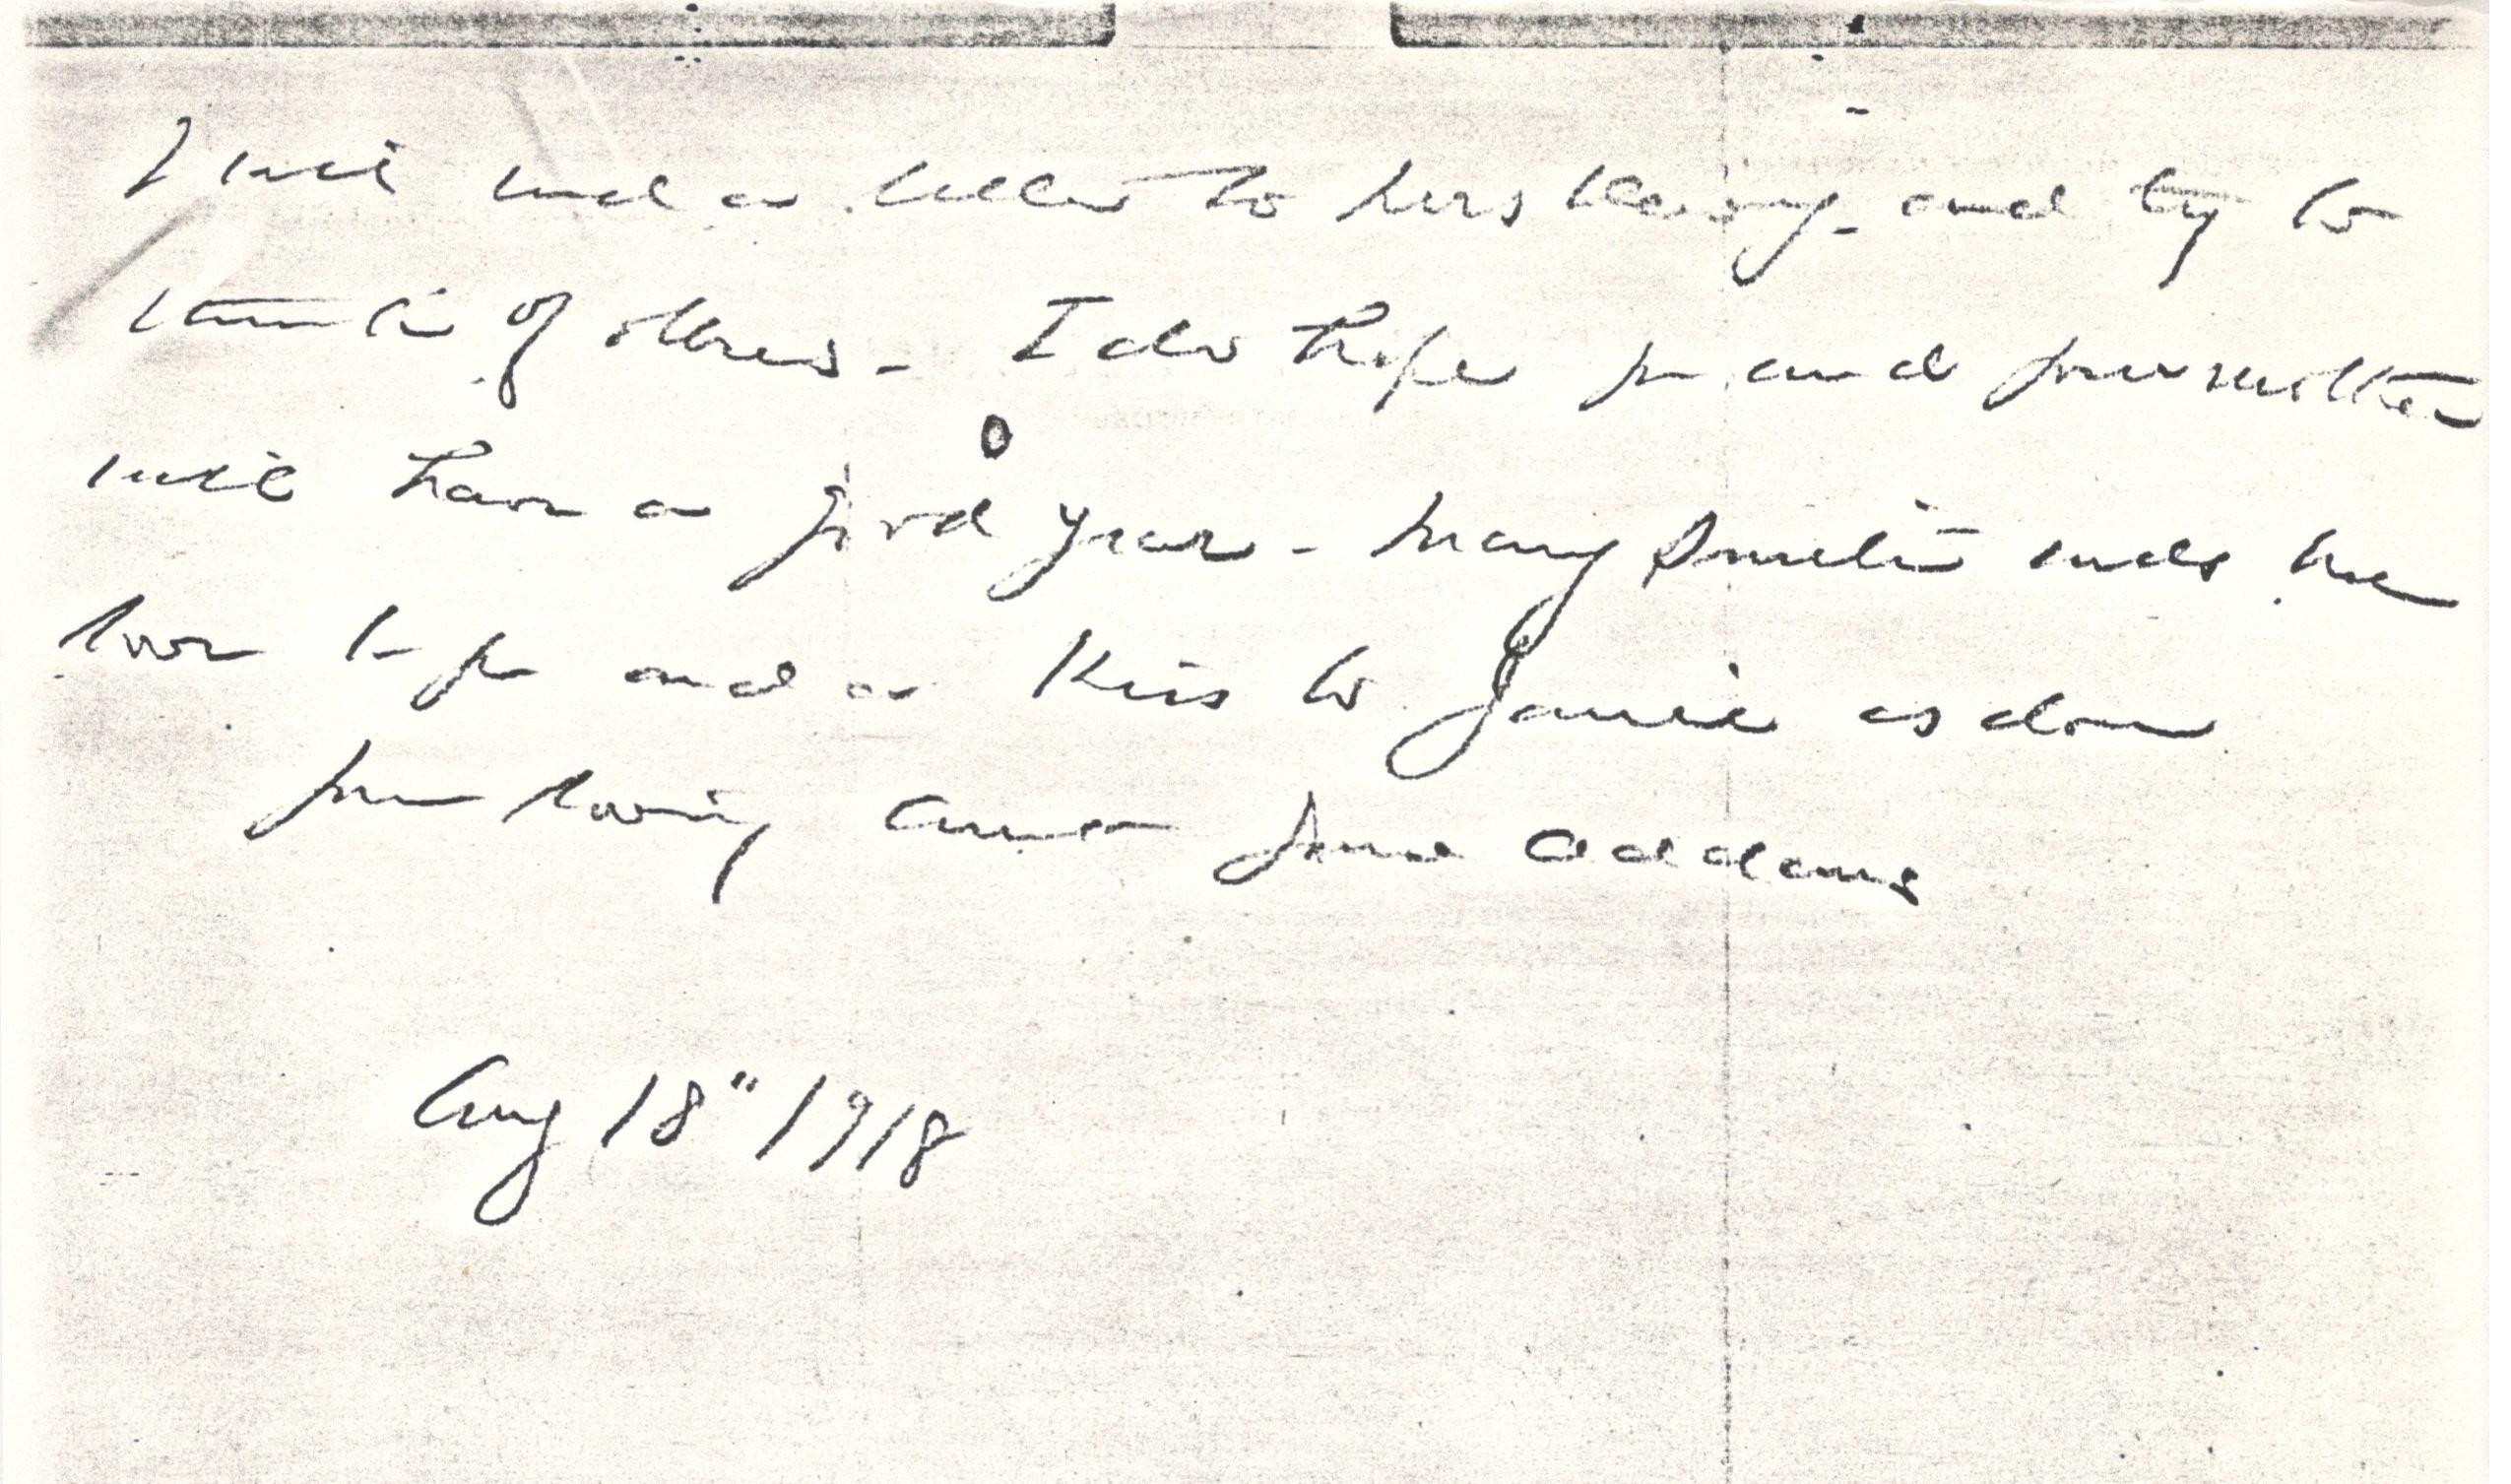 I will send a letter to Mrs and try to
think of others - I do hope you and your mother
will have a good year - Mary Smith sends her
love to you and a kiss to Janie as does
your loving Aunt Jane Addams
Aug 18" 1918